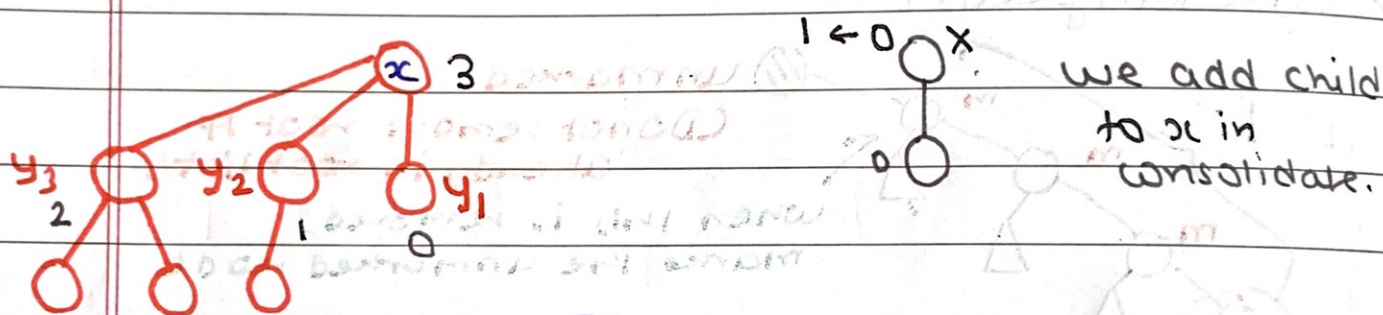 x 3
y3 y2 y1
2 1 0
1 ← 0 x
0
we add child
to x in
consolidate.